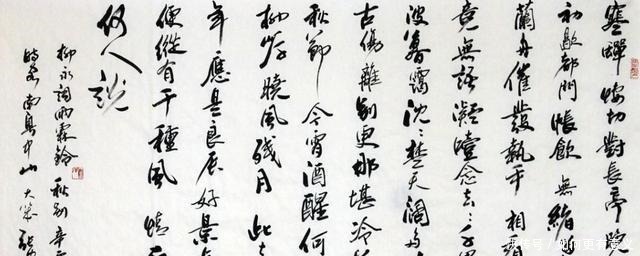 寒蟬悽切對長亭晚
初歇都門帳飲無緒
蘭舟催發執手相看
竟無語凝噎念去々千
波暮靄沈々楚天闊
古傷離別更那堪冷
秋節今宵酒醒何
柳岸曉風殘月此去
年應是良辰好景
便縱有千種風情
何人說
柳永詞雨霖鈴秋別辛
時客南粤中山
快传号/如何更有意义